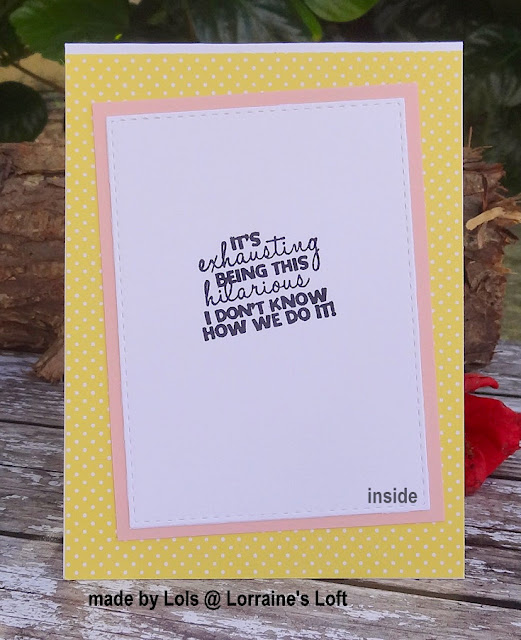 IT'S
exhausting
BEING THIS
hilarious
I DON'T KNOW
HOW WE DO IT!
inside
made by Lols @ Lorraine's Loft